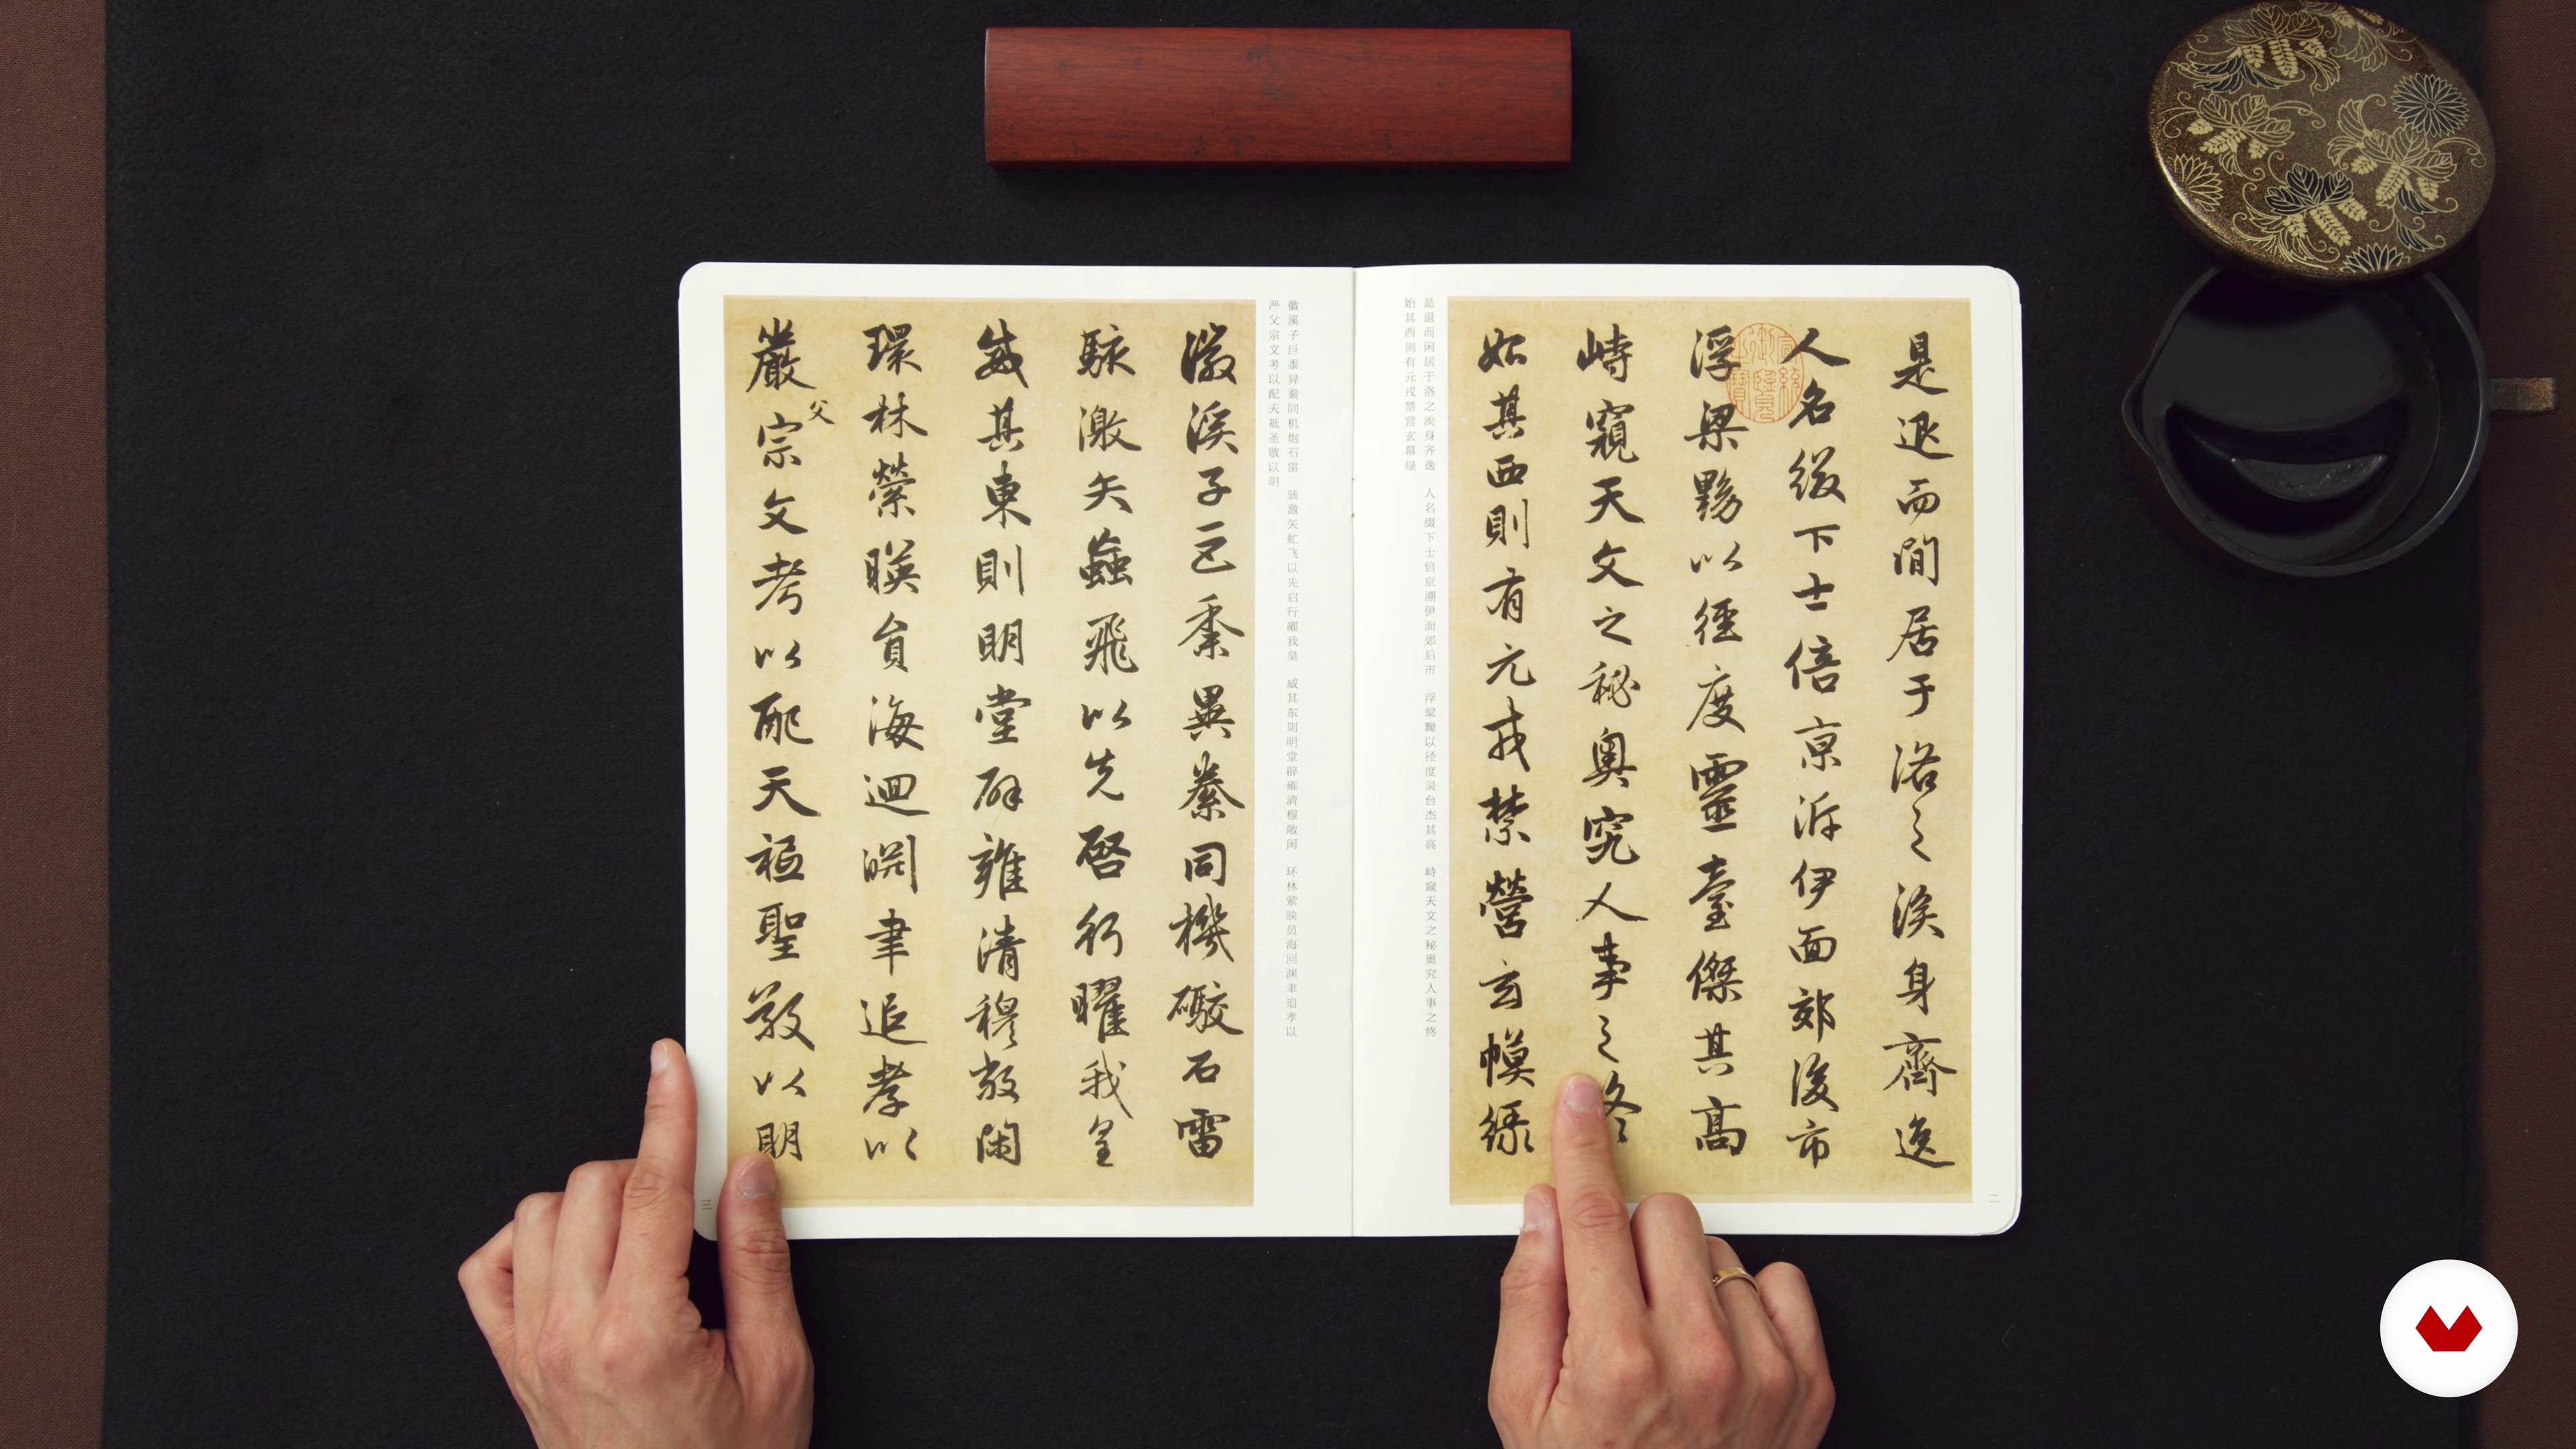 是退而閒居于洛之涘身齊逸
人名綴下士倍京泝伊面郊後市
宣統御覽之寶
浮梁黝以徑度靈臺傑其高
峙窺天文之秘奧究人事之終
始其西則有元戎禁營玄幙綠
是退而闲居于洛之涘身齐逸 人名缀下士倍京溯伊面郊后市 浮梁黝以径度灵台杰其高 峙窥天文之秘奥究人事之终
始其西则有元戎禁营玄幕绿
二
徽溪子巨黍异絭同机炮石雷 骇激矢虻飞以先启行曜我皇 威其东则明堂辟雍清穆敞闲 环林萦映员海回渊聿追孝以
严父宗文考以配天祗圣敬以明
徽溪子巨黍異絭同機礮石雷
駭激矢蝱飛以先啓行曜我皇
威其東則明堂辟雍清穆敞閑
環林縈暎員海迴淵聿追孝以
嚴父宗文考以配天祗聖敬以明
三